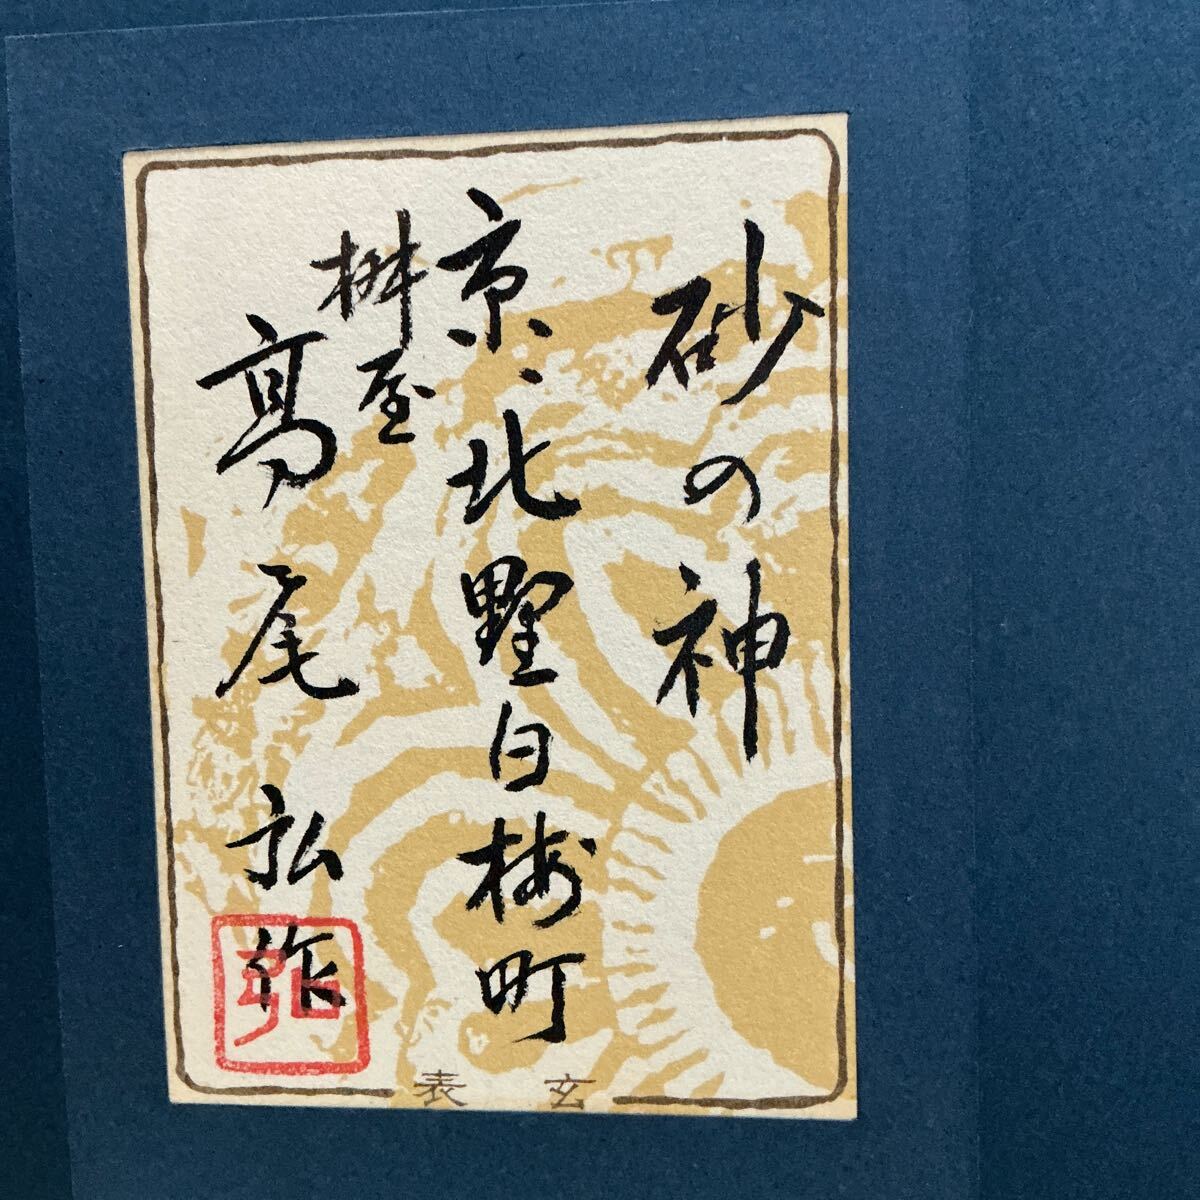 砂の神
京、北野白梅町
桝屋
高尾弘作
弘
表玄